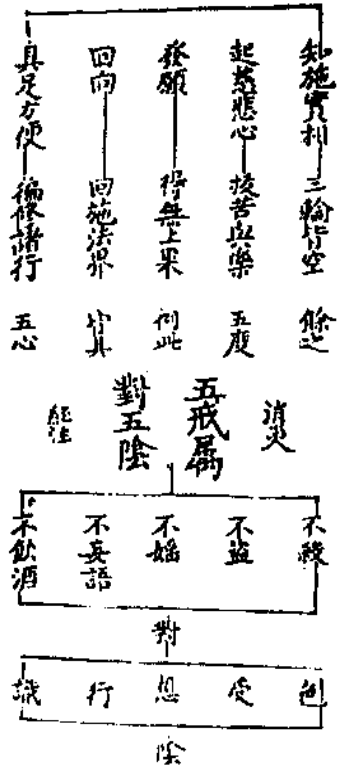 知施實相 三輪皆空 餘之
起慈悲心 拔苦與樂 五度
發願 得無上果 例此
回向 回施法界 皆具
具足方便 徧修諸行 五心
消災
五戒屬
對五陰
經注
不殺
不盜
不婬
不妄語
不飲酒
對
色
受
想
行
識
陰